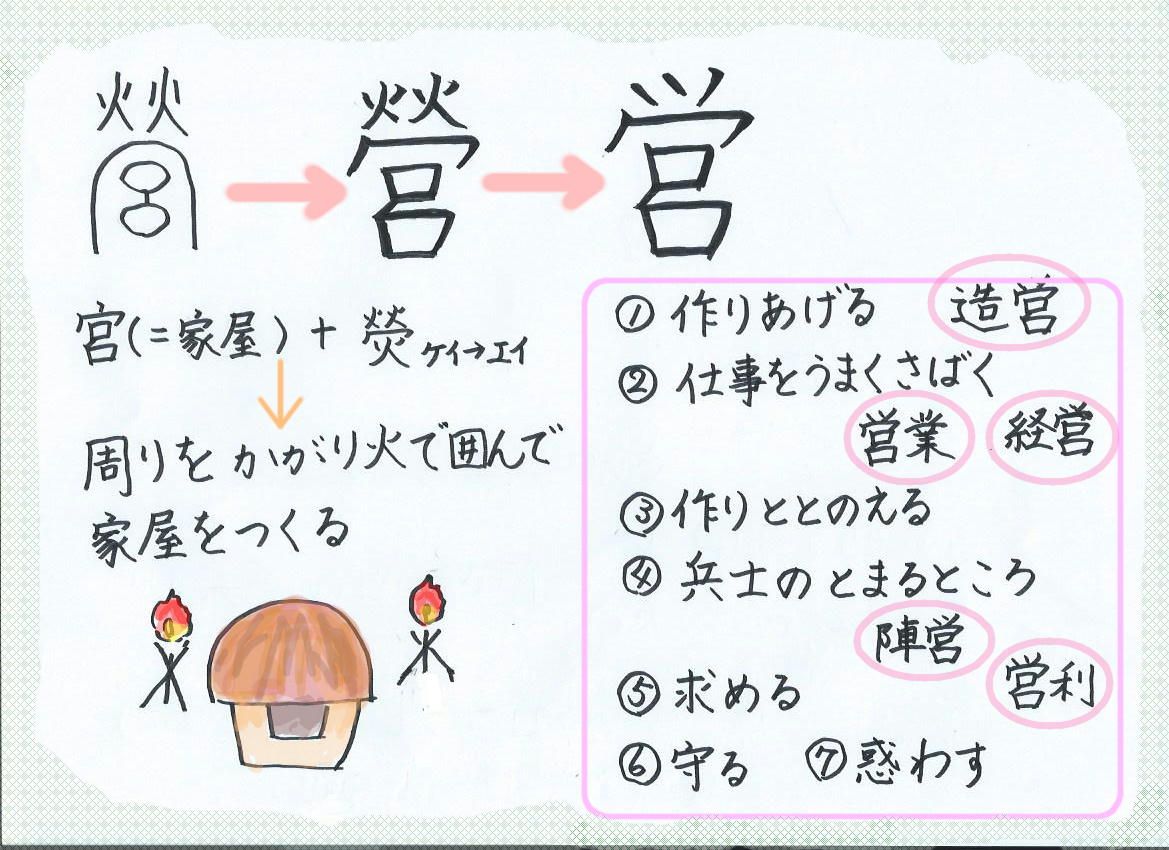 營 → 營 → 営
宮(=家屋)+熒ケイ→エイ
周りをかがり火で囲んで
家屋をつくる
①作りあげる 造営
②仕事をうまくさばく
営業 経営
③作りととのえる
④兵士のとまるところ
陣営
⑤求める 営利
⑥守る ⑦惑わす